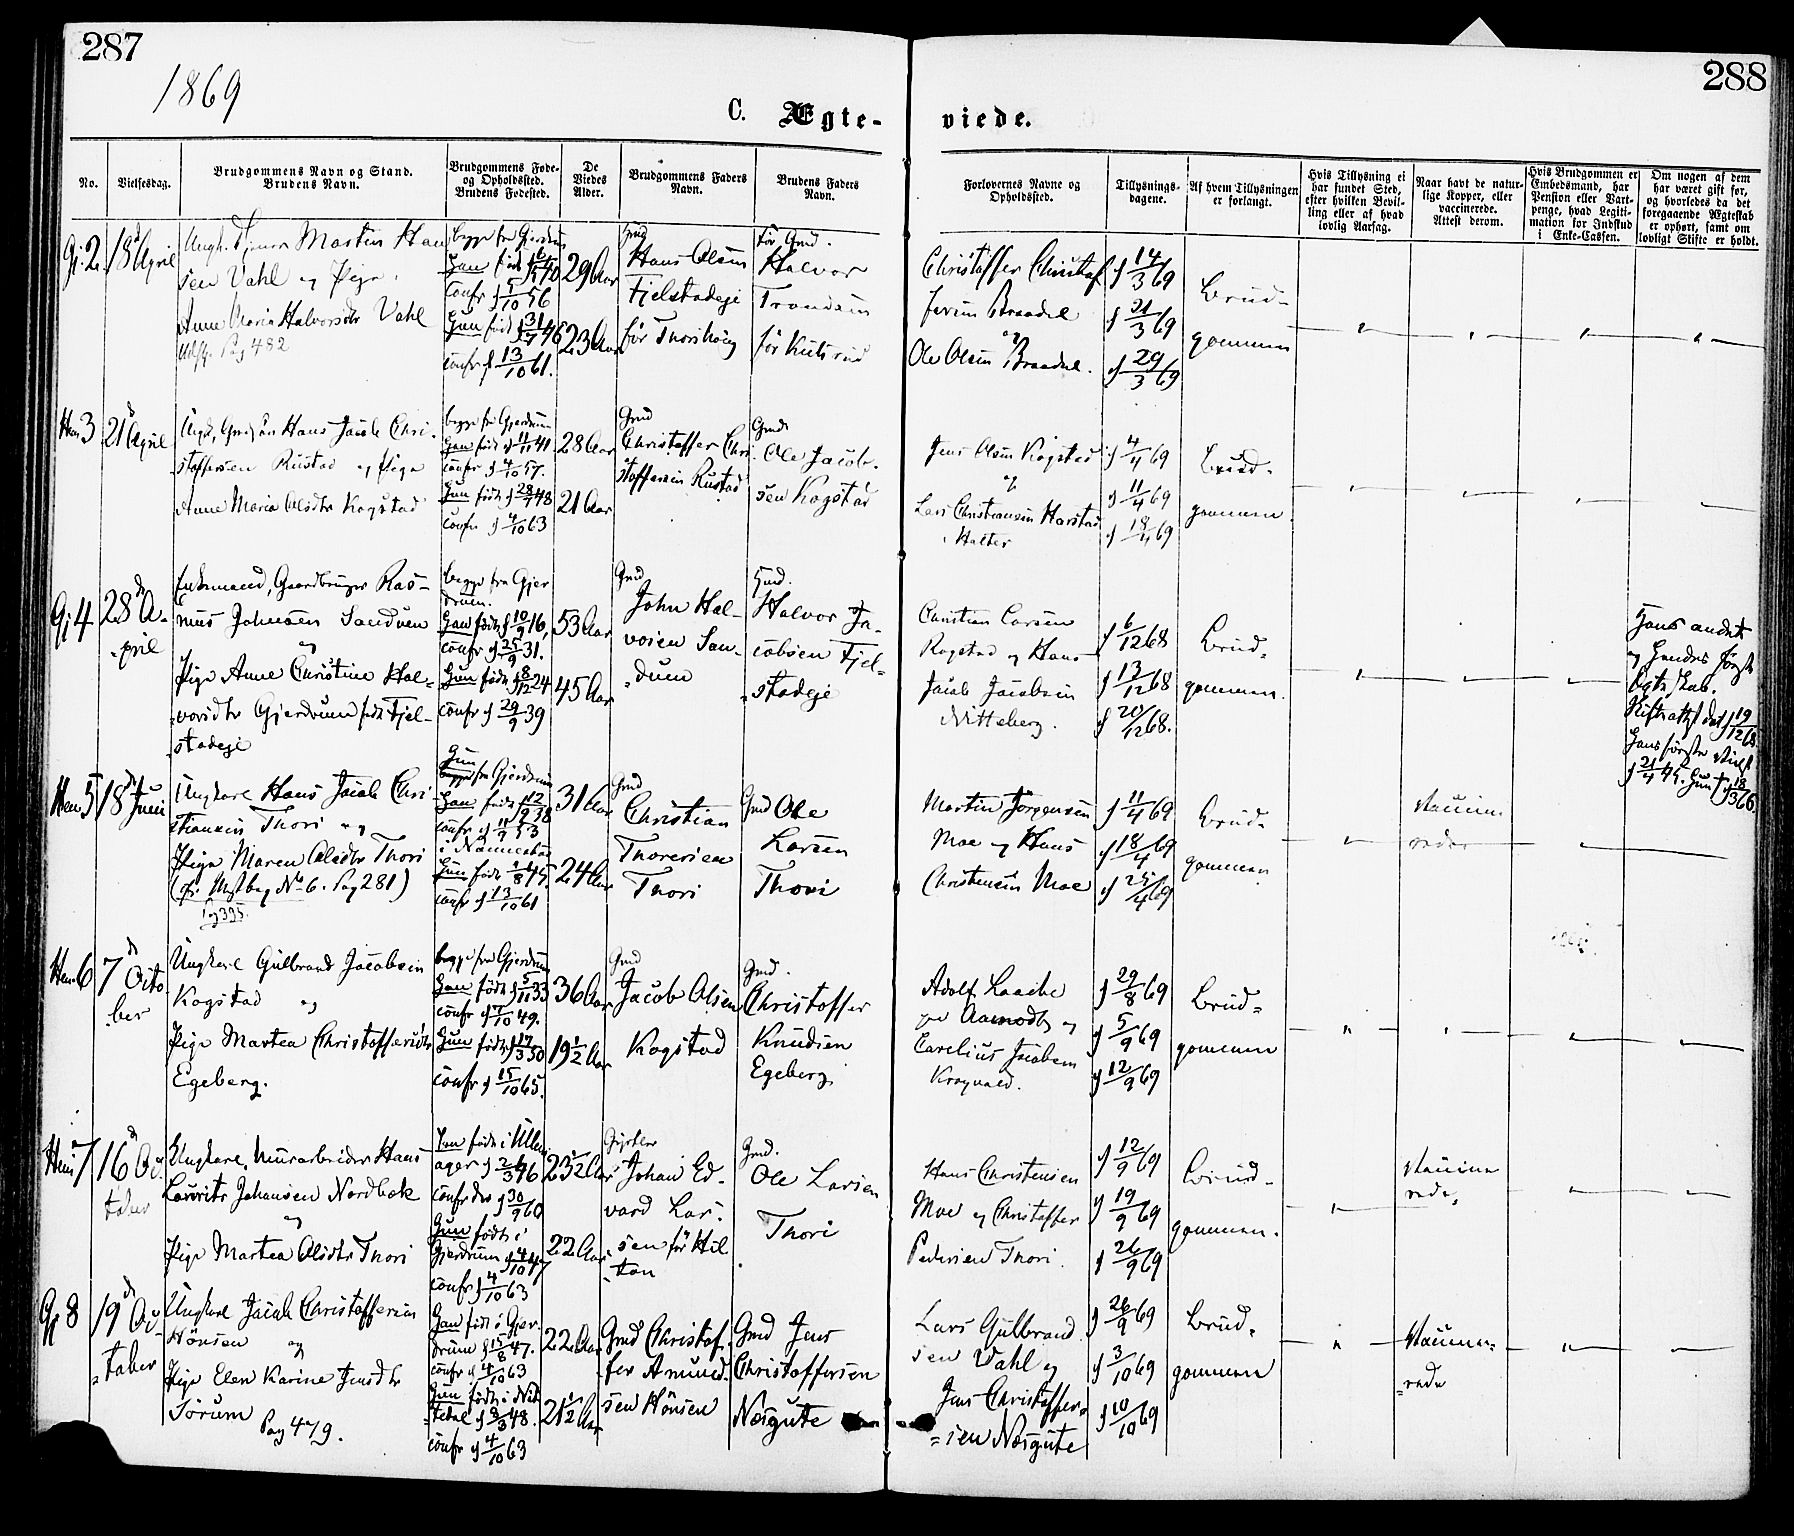 287
288
1869
C. Ægte-
viede.
No.
Vielsesdag.
Brudgommens Navn og Stand.
Brudens Navn.
Brudgommens Føde-
og Opholdssted.
Brudens Fødested.
De
Viedes
Alder.
Brudgommens Faders
Navn.
Brudens Faders
Navn.
Forlovernes Navne og
Opholdssted.
Tillysnings-
dagene.
Af hvem Tillysningen
er forlangt.
Hvis Tillysning ei
har fundet Sted,
efter hvilken Bevil-
ling eller af hvad
lovlig Aarsag.
Naar havt de natur-
lige Kopper, eller
vaccinerede.
Attest derom.
Hvis Brudgommen er
Embedsmand, har
Pension eller Vart-
penge, hvad Legiti-
mation for Indskud
i Enke-Cassen.
Om nogen af dem
har været gift før,
og hvorledes da det
foregaaende Ægteskab
er ophørt, samt om
lovligt Skifte er holdt.
2 18 April
Martin Han
sen Vahl og Pige
Anne Maria Halvorsdtr Vahl
Pag 482
begge fra Gjerdrum
Han født 40
confr 5/10 56
Hun født 31/7 46
confr 13/10 61.
29 Aar
23 Aar
Hans Olsen
Fjelstadeje
før Thorshoug
før Gmd.
Halvor
Trondsen
før Kulsrud
Christoffer Christof
fersen Braadel
og
Ole Olsen Braadel.
14/3 69
21/3 69
29/3 69
Brud-
gommen
3 21 April
Hans Jacob Chri-
stoffersen Rustad og Pige
Anne Maria Olsdtr Kogstad
begge fra Gjerdrum
Han født 11/11 41
confr 4/10 57.
Hun født 28/1 48
confr 4/10 63
28 Aar
21 Aar
Gmd
Christoffer Chri
stoffersen Rustad
Gmd
Ole Jacob-
sen Kogstad
Jens Olsen Kogstad
og
Lars Christiansen Harstad
4/4 69
11/4 69
18/4 69
Brud-
gommen.
4 28 A-
pril
Enkemand, Gaardbruger Ras-
mus Johnsen Sandum
og
Pige Anne Christine Hal-
vorsdtr Gjerdrum født Fjel-
stadeje
begge fra Gjer
drum.
Han født 10/9 16,
confr 25/9 31.
Hun født 8/12 24
confr 29/9 39
53 Aar
45 Aar
Gmd
John Hal-
vorsen San-
dum
Halvor Ja-
cobsen Fjel-
stadeje
Christian Larsen
Rogstad og Hans
Jacob Jacobsen
Nitteberg.
6/12 68
13/12 68
20/12 68.
Brud-
gommen.
Hans andet
og Hendes første
Ægteskab.
19/12 68
Hans første
21/4 45. Hun † 18/3 66.
5 18 Juni
Ungkarl Hans Jacob Chri
stiansen Thori og
Pige Maren Olsdtr Thori
No 6. Pag 281)
Hun
fra Gjerdrum
Han født 12/2 38
confr 11/9 53
i Nannestad
Hun født 45.
confr 13/10 61
31 Aar
24 Aar
Gmd
Christian
Thoresen
Thori
Gmd Ole
Larsen
Thori
Martin Jørgensen
Moe og Hans
Christensen Moe
11/4 69
18/4 69
25/4 69
Brud-
gommen
Vaccine
rede
6 7 Octo
ber
Ungkarl Gulbrand Jacobsen
Kogstad og
Pige Martea Christoffersdtr
Egeberg.
begge fra Gjerdrum
Han født 5/11 33
confr 49.
Hun født 17/3 50
confr 15/10 65.
36 Aar
19 1/2 Aar
Gmd
Jacob Olsen
Kogstad
Gmd.
Christoffer
Knudsen
Egeberg
Adolf Laache
paa Aamodt og
Carelius Jacobsen
Krogvald.
29/8 69
5/9 69
12/9 69
Brud-
gommen
7 16 Oc-
tober
Ungkarl, Murarbeider Hans
Lauritz Johansen Nordbæk
og
Pige Martea Olsdtr Thori
Han født i Ullen
ager 46
confr 30/9 60
Hun født i
Gjerdrum 4/10 47
confr 4/10 63
23 1/2 Aar
22 Aar
Johan Ed-
vard Lar-
sen før Hil
ton
Gmd.
Ole Larsen
Thori
Hans Christensen
Moe og Christoffer
Pedersen Thori
12/9 69
19/9 69
26/9 69
Brud-
gommen.
Vaccine
rede,
8 19 Oc-
tober
Ungkarl Jacob Christoffersen
Hønsen og
Pige Elen Karine Jensdtr
Sørum Pag 479.
Han født i Gjer-
drum 15/8 47.
confr 4/10 63
Hun født i Nit
tedal 8/3 48.
confr 4/10 63
22 Aar
21 1/2 Aar
Gmd Christof-
fer Amund-
sen Hønsen
Gmd Jens
Christoffersen
Næsgute
Lars Gulbrand
sen Vahl og
Jens Christoffer-
sen Næsgute
26/9 69
3/10 69
10/10 69
Brud-
gommen
Vaccine-
rede